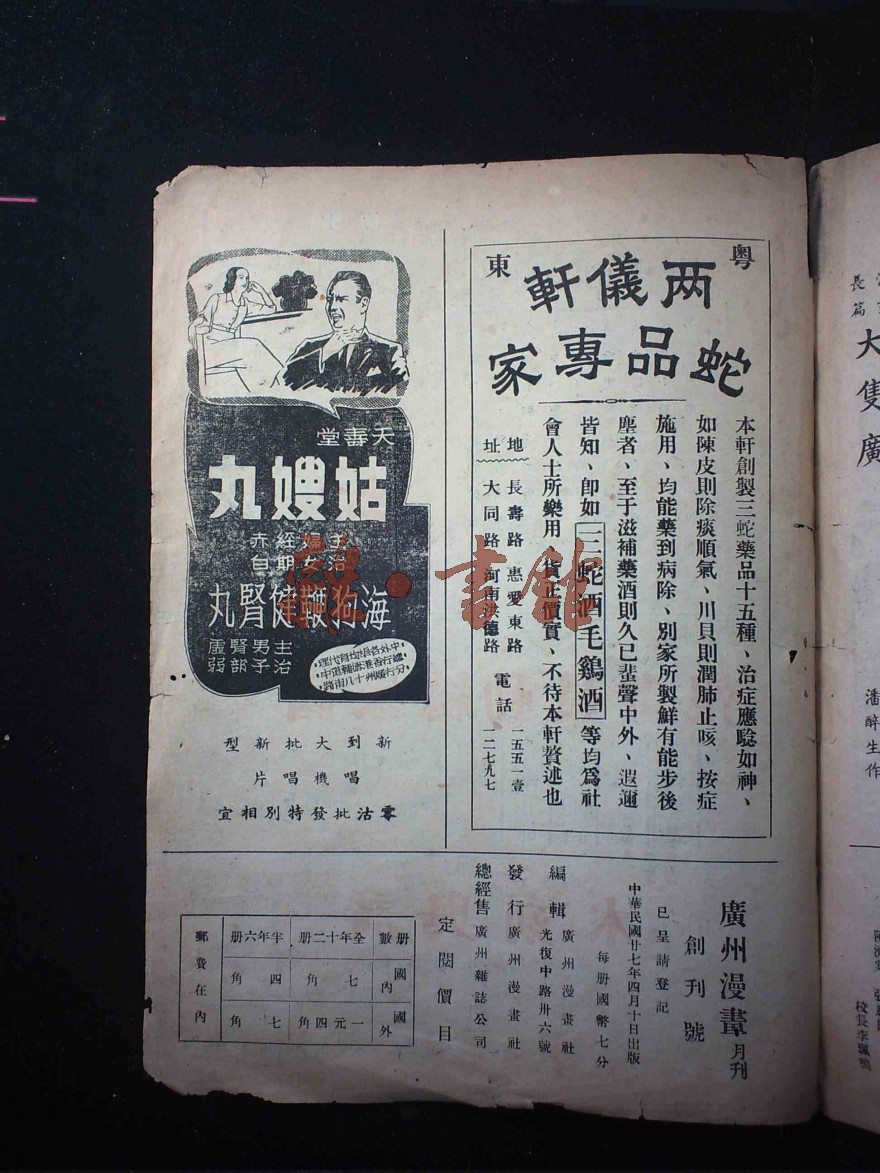 粵東
两儀軒
蛇品專家
本軒創製三蛇藥品十五種、治症應騐如神、
如陳皮則除痰順氣、川貝則潤肺止咳、按症
施用、均能藥到病除、別家所製鮮有能步後
塵者、至于滋補藥酒則久已蜚聲中外、遐邇
皆知、卽如三蛇酒毛鷄酒等均爲社
會人士所樂用、貨正價實、不待本軒贅述也
地址
長壽路 惠愛東路
大同路 河南洪德路
電話
一五五一壹
一二七九七
天壽堂
姑嫂丸
主治婦女經期赤白
海狗鞭健腎丸
主治男子腎部虛弱
中外各埠均有代理
總行香港德輔道中
分行廣州十八甫路
新到大批新型
唱機唱片
零沽批發特別相宜
廣州漫畫月刊
創刊號
已呈請登記
中華民國廿七年四月十日出版
每册國幣七分
編輯 廣州漫畫社
光復中路卅六號
發行 廣州漫畫社
總經售 廣州雜誌公司
定閱價目
册數 全年十二册 半年六册
國內 七角 四角
國外 一元四角 七角
郵費在內
長篇
大隻廣
潘醉生作
校長李珮鳴
雜·書館